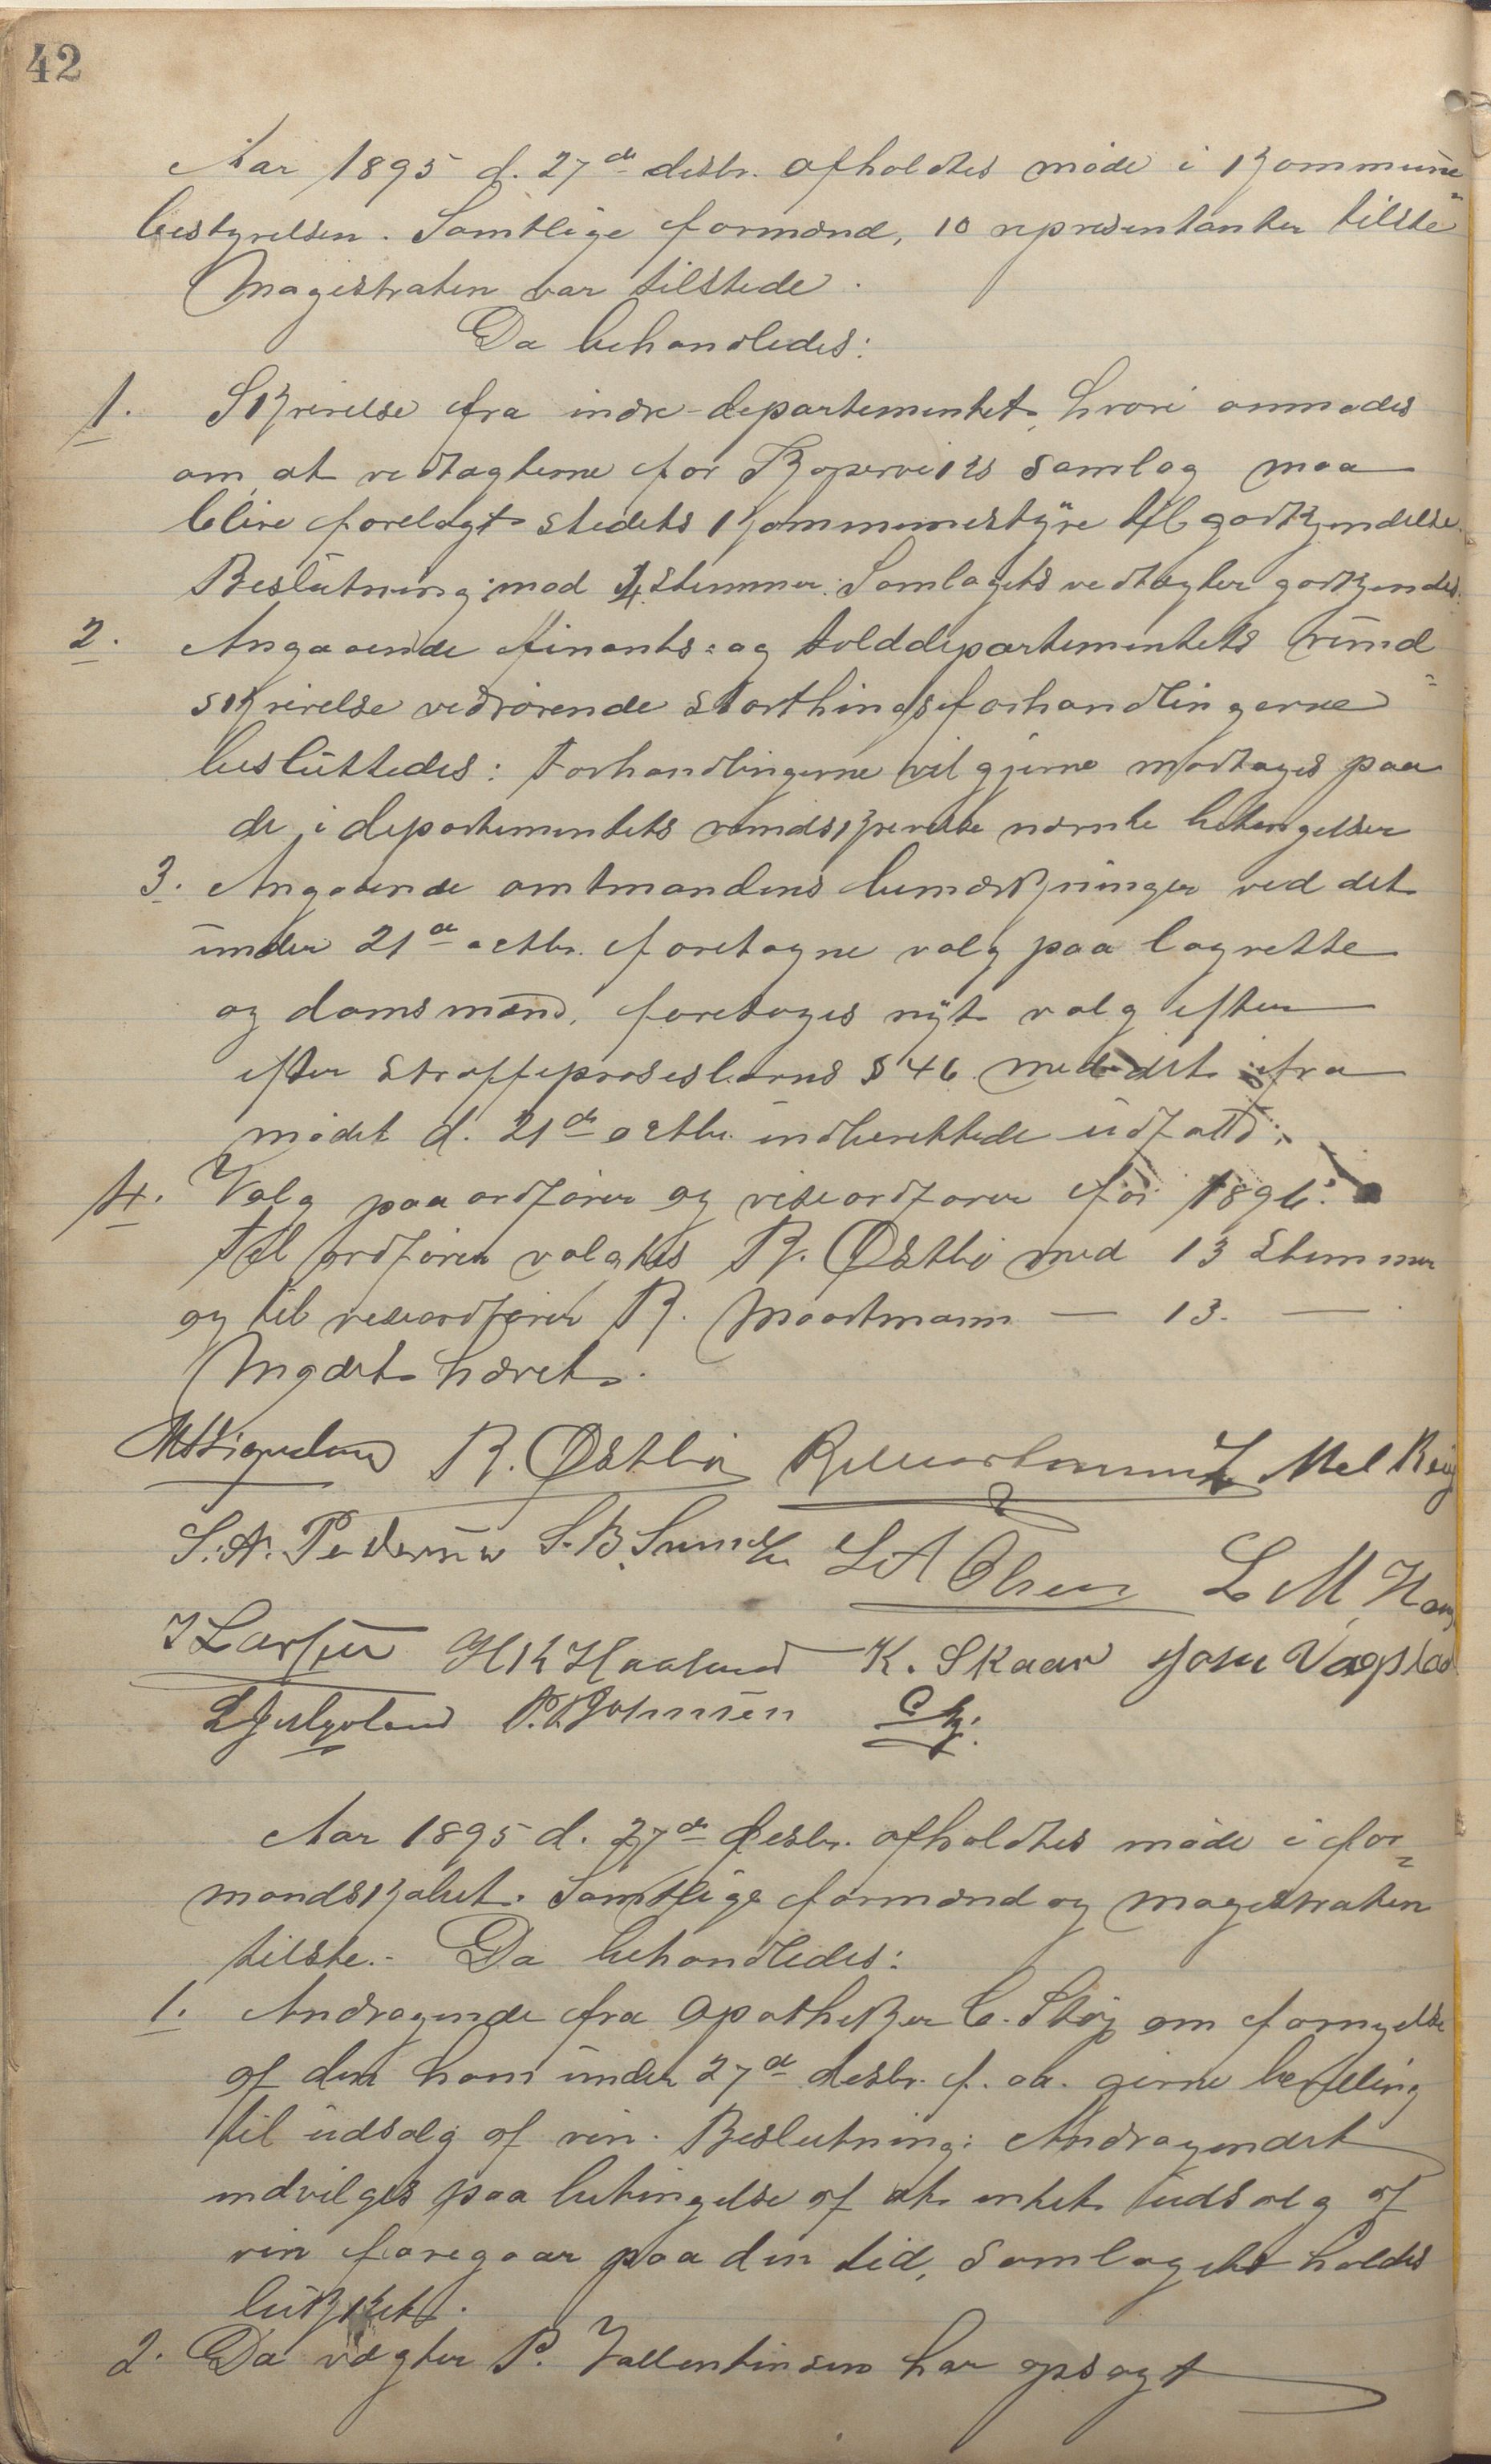 42
Aar 1895 d. 27de desbr. afholdtes möde i Kommune=
bestyrelsen. Samtlige formænd, 10 representanter tilste
Magistraten var tilstede.
Da behandledes:
1. Skrivelse fra indre-departementet, hvori anmodes
om, at vedtægterne for Kopervik's samlag maa
blive forelagt stedets Kommunestyre til godkjendelse.
Beslutning: mod 4 stemmer: Samlagets vedtægter godkjendes.
2. Angaaende finants= og tolddepartementets rund=
skrivelse vedrörende storthingsforhandlingerne
besluttedes: Forhandlingerne vil gjerne modtages paa
de i departementets rundskrivelse nævnte betingelser
3. Angaaende amtmandens bemærkninger ved det
under 21de octbr. foretagne valg paa lagrette
og domsmænd, foretoges nyt valg efter
efter straffeproseslovens § 46 med det ifra
mödet d. 21de octbr. indberettede udfald.
4. Valg paa ordförer og viseordförer for 1896.
Til ordförer valgtes R. Østbö med 13 Stemmer
og til viseordförer R. Moortmann — 13. —
Mödet hævet.
R. Østbö
S. A. Pedersen S. B. Sund L A Olsen L M
I Larsen H K Haaland K. Skaar John Vagslad
P. Johnsen
Aar 1895 d. 27de desbr. afholdtes möde i for=
mandskabet. Samtlige formænd og magistraten
tilste.- Da behandledes:
1. Andragende fra Apotheker C. Støy om fornyelse
af den ham under 27de desbr. f. aa. givne bevilling
til udsalg af vin. Beslutning: Andragendet
indvilges paa betingelse af at intet udsalg af
vin foregaar paa den tid, Samlaget holdes
lukket.
2. Da vægter P. Vallentinsen har opsagt